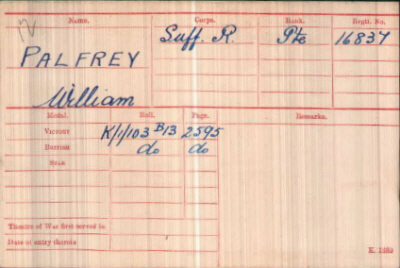 Name. Corps. Rank. Regtl. No.
PALFREY Suff. R. Pte 16837
William
Medal. Roll. Page. Remarks.
VICTORY K/1/103 B13 2595
BRITISH do do
STAR
Theatre of War first served in
Date of entry therein